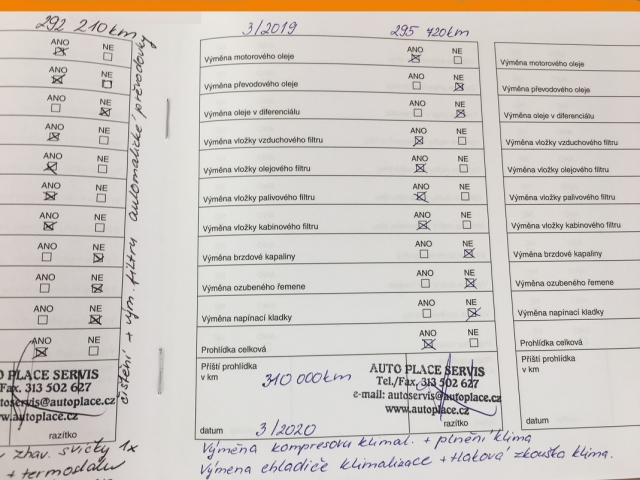 292 210km
ANO NE
ANO NE
ANO NE
ANO NE
ANO NE
ANO NE
ANO NE
ANO NE
ANO NE
ANO NE
ANO NE
O PLACE SERVIS
Fax. 313 502 627
toservis@autoplace.cz
w.autoplace.cz
razítko
zhav. svíčky 1x
+ termostatu
čištění + vým. filtru automatické převodovky
3/2019 295 720km
Výměna motorového oleje ANO NE
Výměna převodového oleje ANO NE
Výměna oleje v diferenciálu ANO NE
Výměna vložky vzduchového filtru ANO NE
Výměna vložky olejového filtru ANO NE
Výměna vložky palivového filtru ANO NE
Výměna vložky kabinového filtru ANO NE
Výměna brzdové kapaliny ANO NE
Výměna ozubeného řemene ANO NE
Výměna napínací kladky ANO NE
Prohlídka celková ANO NE
Příští prohlídka
v km 310 000km
AUTO PLACE SERVIS
Tel./Fax. 313 502 627
e-mail: autoservis@autoplace.cz
www.autoplace.cz
datum 3/2020 razítko
Výměna kompresoru klimat. + plnění klima
Výmena chladiče klimalizace + tlaková zkouška klima.
Výměna motorového oleje
Výměna převodového oleje
Výměna oleje v diferenciálu
Výměna vložky vzduchového filtru
Výměna vložky olejového filtru
Výměna vložky palivového filtru
Výměna vložky kabinového filtru
Výměna brzdové kapaliny
Výměna ozubeného řemene
Výměna napínací kladky
Prohlídka celková
Příští prohlídka
v km
datum